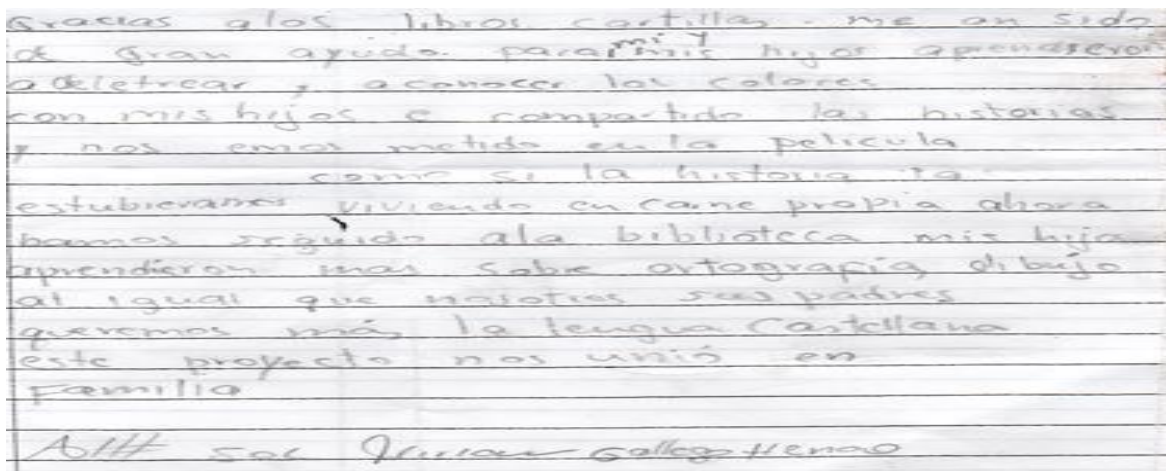 Gracias alos libros cartillas. me an sido
de gran ayuda. para mi y mis hijos aprendieron
a deletrear y aconocer los colores
con mis hijos e compartido las historias
y nos emos metido en la pelicula
como si la historia la
estubieramos viviendo en carne propia ahora
bamos seguido ala biblioteca mis hijos
aprendieron mas sobre ortografia dibujo
al igual que nosotros sus padres
queremos más la lengua Castellana
este proyecto nos unió en
Familia
Sol Gallego Henao